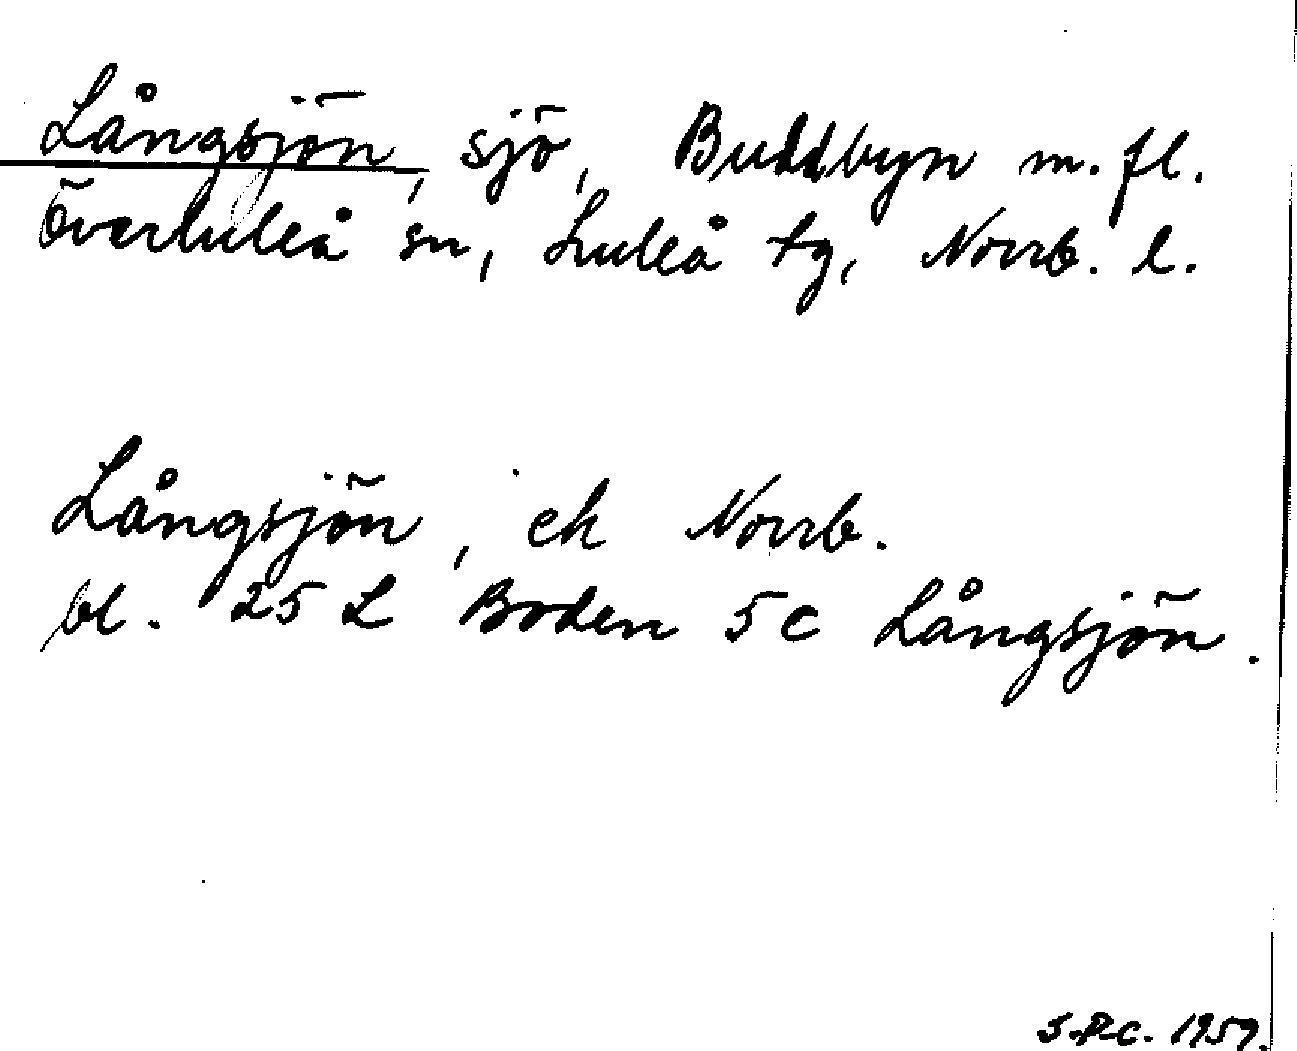 Långsjön, sjö, Buddbyn m. fl.
Överluleå sn, Luleå tg, Norrb. l.
Långsjön, ek Norrb.
bl. 25 L Boden 5 c Långsjön.
S.P.C. 1959.